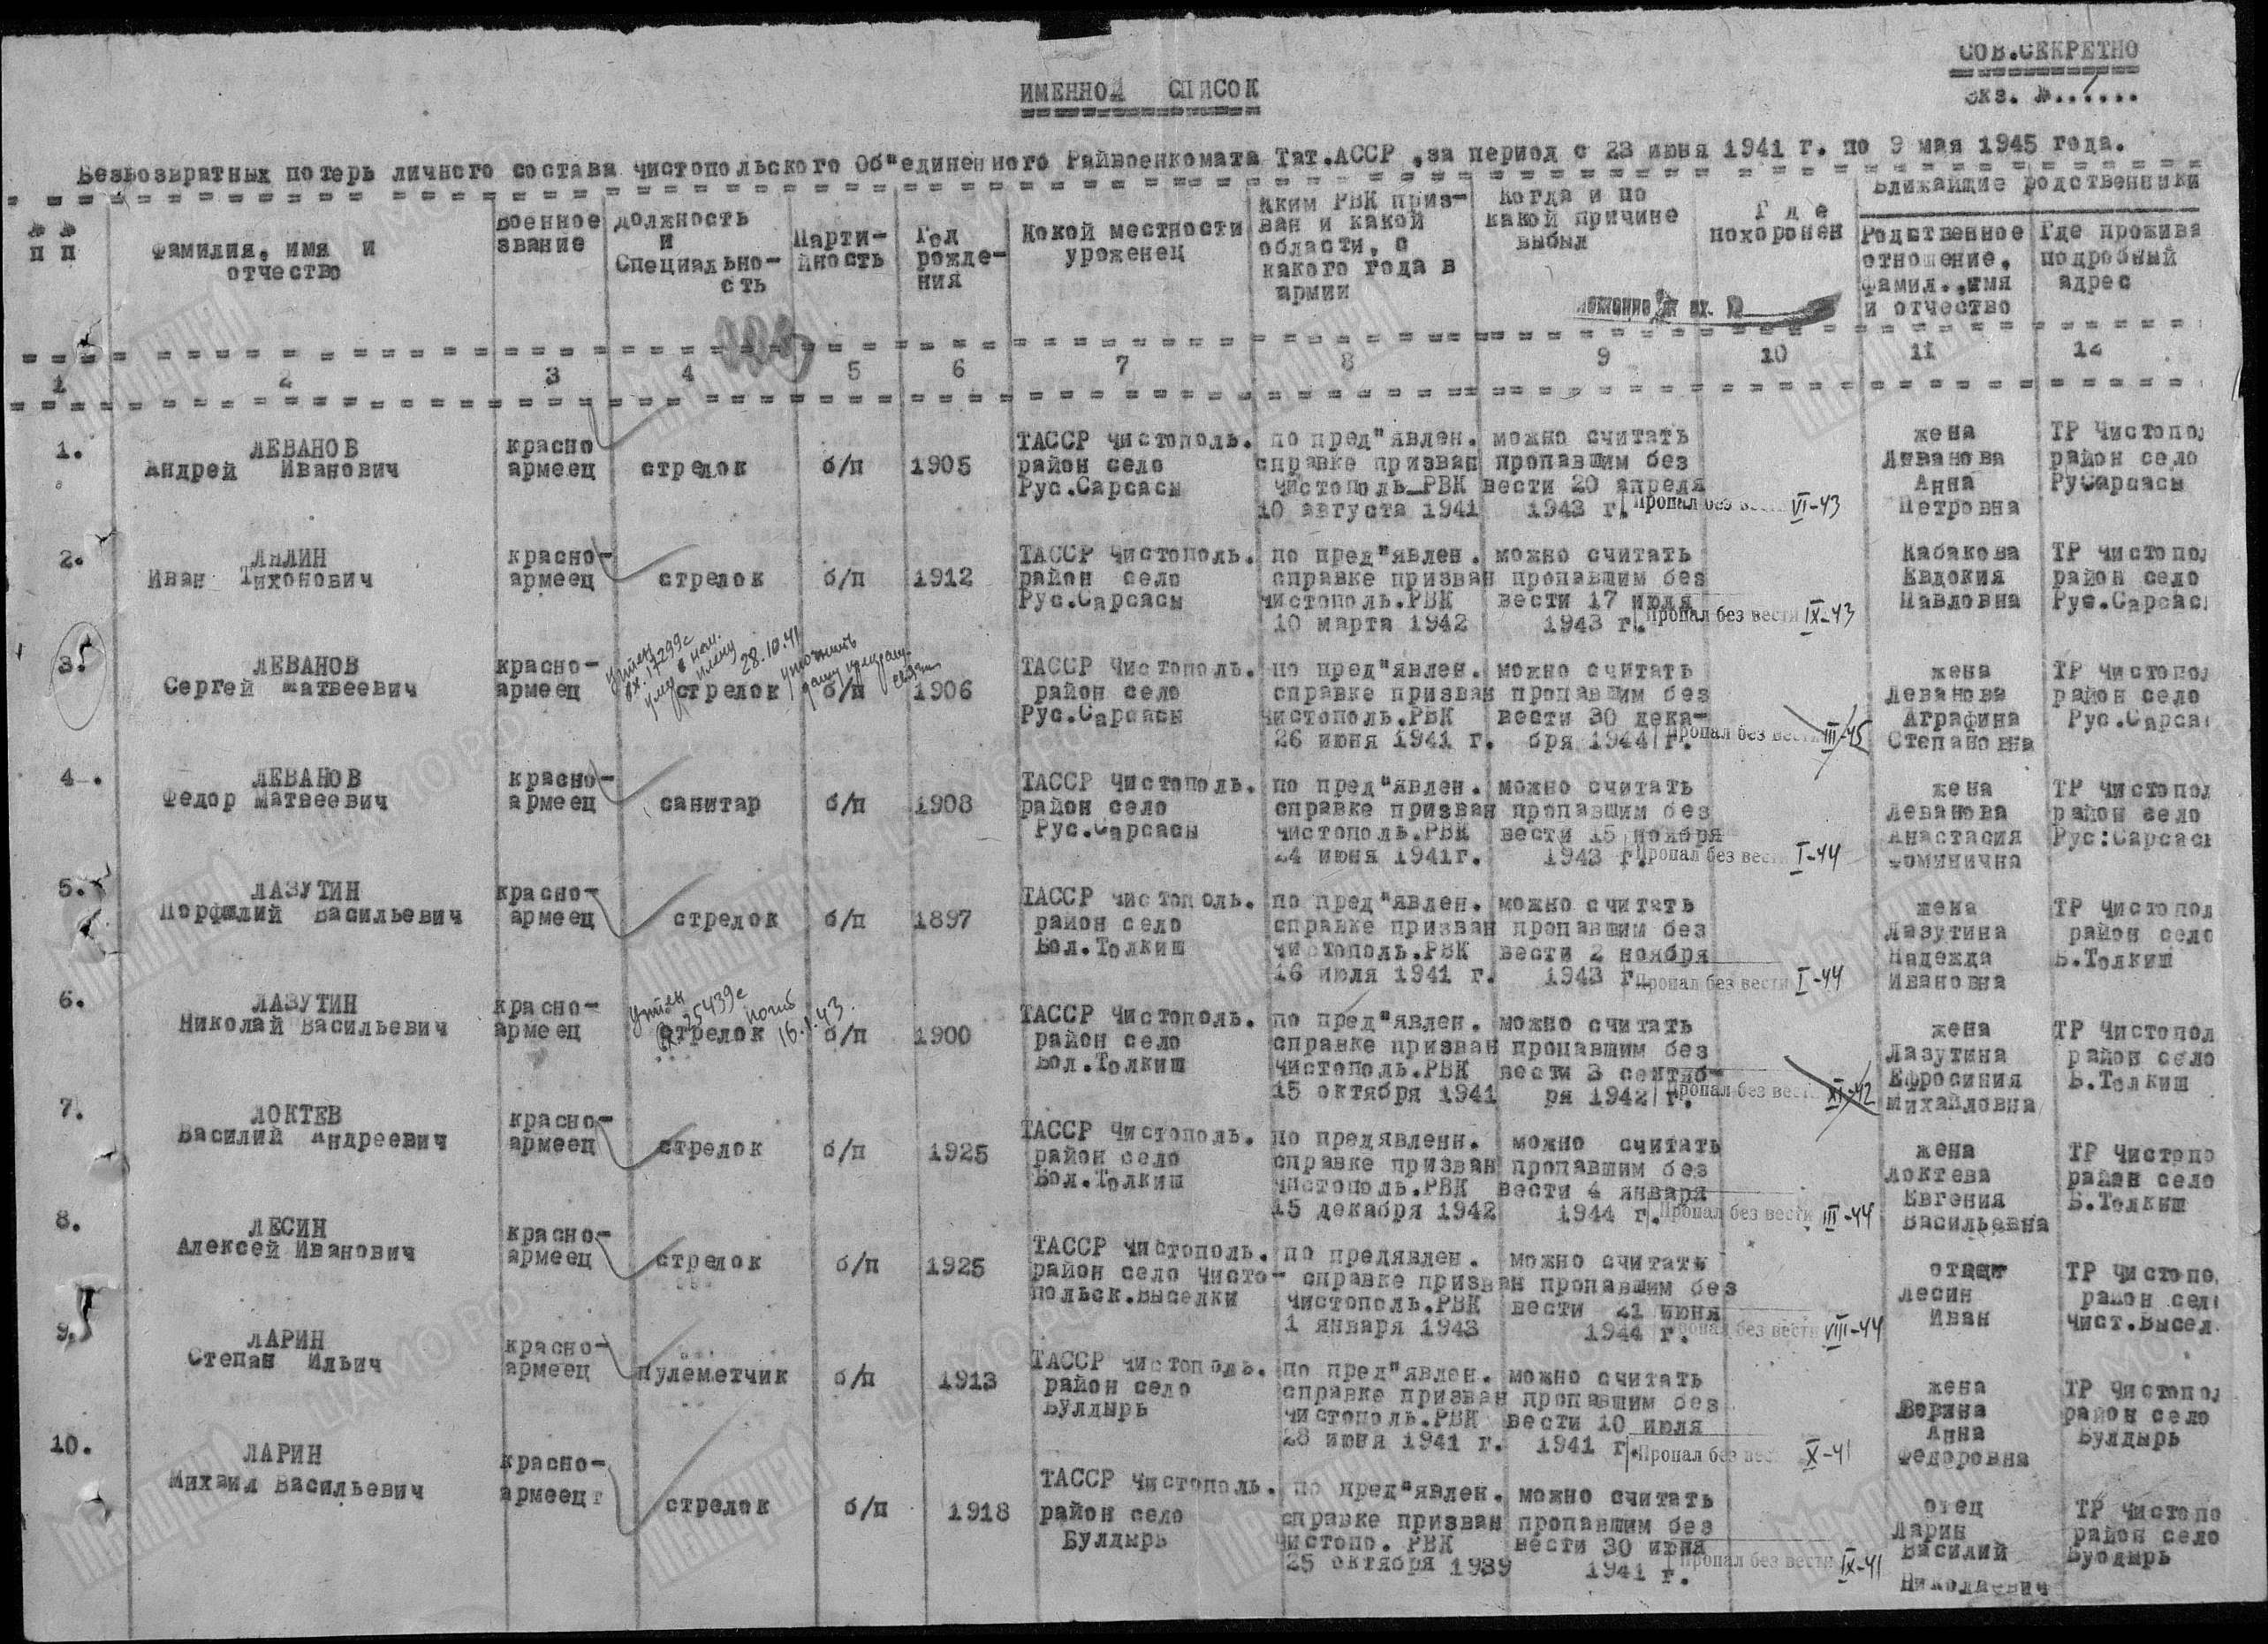 СОВ.СЕКРЕТНО
экз. №......
ИМЕННОЙ СПИСОК
Безвозвратных потерь личного состава Чистопольского Об"единенного Райвоенкомата Тат.АССР ,за период с 23 июня 1941 г. по 9 мая 1945 года.
№ №
п п
Фамилия, имя и
отчество
военное
звание
должность
и
Специально-
сть
Парти-
йность
Год
рожде-
ния
Какой местности
уроженец
Яким РВК приз-
ван и какой
области, с
какого года в
армии
Когда и по
какой причине
выбыл
Г д е
похоронен
Ближайшие родственники
Родственное
отношение,
фамил.,имя
и отчество
Где прожива
подробный
адрес
1 2 3 4 5 6 7 8 9 10 11 12
1.
ЛЕВАНОВ
Андрей Иванович
красно
армеец
стрелок
б/п
1905
ТАССР Чистополь.
район село
Рус.Сарсасы
по пред"явлен.
справке призван
Чистополь.РВК
10 августа 1941
можно считать
пропавшим без
вести 20 апреля
1943 г.
Пропал без вести VI-43
жена
Леванова
Анна
Петровна
ТР Чистопол
район село
РуСарсасы
2.
ЛЯЛИН
Иван Тихонович
красно-
армеец
стрелок
б/п
1912
ТАССР Чистополь.
район село
Рус.Сарсасы
по пред"явлен.
справке призван
Чистополь.РВК
10 марта 1942
можно считать
пропавшим без
вести 17 июля
1943 г.
Пропал без вести IX-43
Кабакова
Евдокия
Павловна
ТР Чистопол
район село
Рус.Сарсас
3.
ЛЕВАНОВ
Сергей Матвеевич
красно-
армеец
вх. 17299с
28.10.41
уточнить
стрелок
б/п
1906
ТАССР Чистополь.
район село
Рус.Сарсасы
по пред"явлен.
справке призван
Чистополь.РВК
26 июня 1941 г.
можно считать
пропавшим без
вести 30 дека-
бря 1944 г.
Пропал без вести III-45
жена
Леванова
Аграфина
Степановна
ТР Чистопол
район село
Рус.Сарса
4.
ЛЕВАНОВ
Федор Матвеевич
красно-
армеец
санитар
б/п
1908
ТАССР Чистополь.
район село
Рус.Сарсасы
по пред"явлен.
справке призван
Чистополь.РВК
24 июня 1941г.
можно считать
пропавшим без
вести 15 ноября
1943 г.
Пропал без вести I-44
жена
Леванова
Анастасия
Фоминична
ТР Чистопол
район село
Рус:Сарсас
5.
ЛАЗУТИН
Порфилий Васильевич
красно-
армеец
стрелок
б/п
1897
ТАССР Чистополь.
район село
Бол.Толкиш
по пред"явлен.
справке призван
Чистополь.РВК
16 июля 1941 г.
можно считать
пропавшим без
вести 2 ноября
1943 г.
Пропал без вести I-44
жена
Лазутина
Надежда
Ивановна
ТР Чистопол
район село
Б.Толкиш
6.
ЛАЗУТИН
Николай Васильевич
красно-
армеец
25439с
погиб
16.1.43.
стрелок
б/п
1900
ТАССР Чистополь.
район село
Бол.Толкиш
по пред"явлен.
справке призван
Чистополь.РВК
15 октября 1941
можно считать
пропавшим без
вести 3 сентяб-
ря 1942 г.
Пропал без вести XI-42
жена
Лазутина
Ефросиния
Михайловна
ТР Чистопол
район село
Б.Толкиш
7.
ЛОКТЕВ
Василий Андреевич
красно-
армеец
стрелок
б/п
1925
ТАССР Чистополь.
район село
Бол.Толкиш
по предявленн.
справке призван
Чистополь.РВК
15 декабря 1942
можно считать
пропавшим без
вести 4 января
1944 г.
Пропал без вести III-44
жена
Локтева
Евгения
Васильевна
ТР Чистопо
район село
Б.Толкиш
8.
ЛЕСИН
Алексей Иванович
красно-
армеец
стрелок
б/п
1925
ТАССР Чистополь.
район село Чисто-
польск.Выселки
по предявлен.
справке призван
Чистополь.РВК
1 января 1943
можно считать
пропавшим без
вести 21 июня
1944 г.
Пропал без вести VIII-44
отец
Лесин
Иван
ТР Чистопо
район сел
Чист.Высел
9.
ЛАРИН
Степан Ильич
красно-
армеец
пулеметчик
б/п
1913
ТАССР Чистополь.
район село
Булдырь
по пред"явлен.
справке призван
Чистополь.РВК
28 июня 1941 г.
можно считать
пропавшим без
вести 10 июля
1941 г.
Пропал без вес X-41
жена
Анна
Федоровна
ТР Чистопол
район село
Булдырь
10.
ЛАРИН
Михаил Васильевич
красно-
армеец
стрелок
б/п
1918
ТАССР Чистополь.
район село
Булдырь
по пред"явлен.
справке призван
Чистопо. РВК
25 октября 1939
можно считать
пропавшим без
вести 30 июня
1941 г.
Пропал без вести IX-41
отец
Ларин
Василий
Николаевич
ТР Чистопо
район село
Буодырь